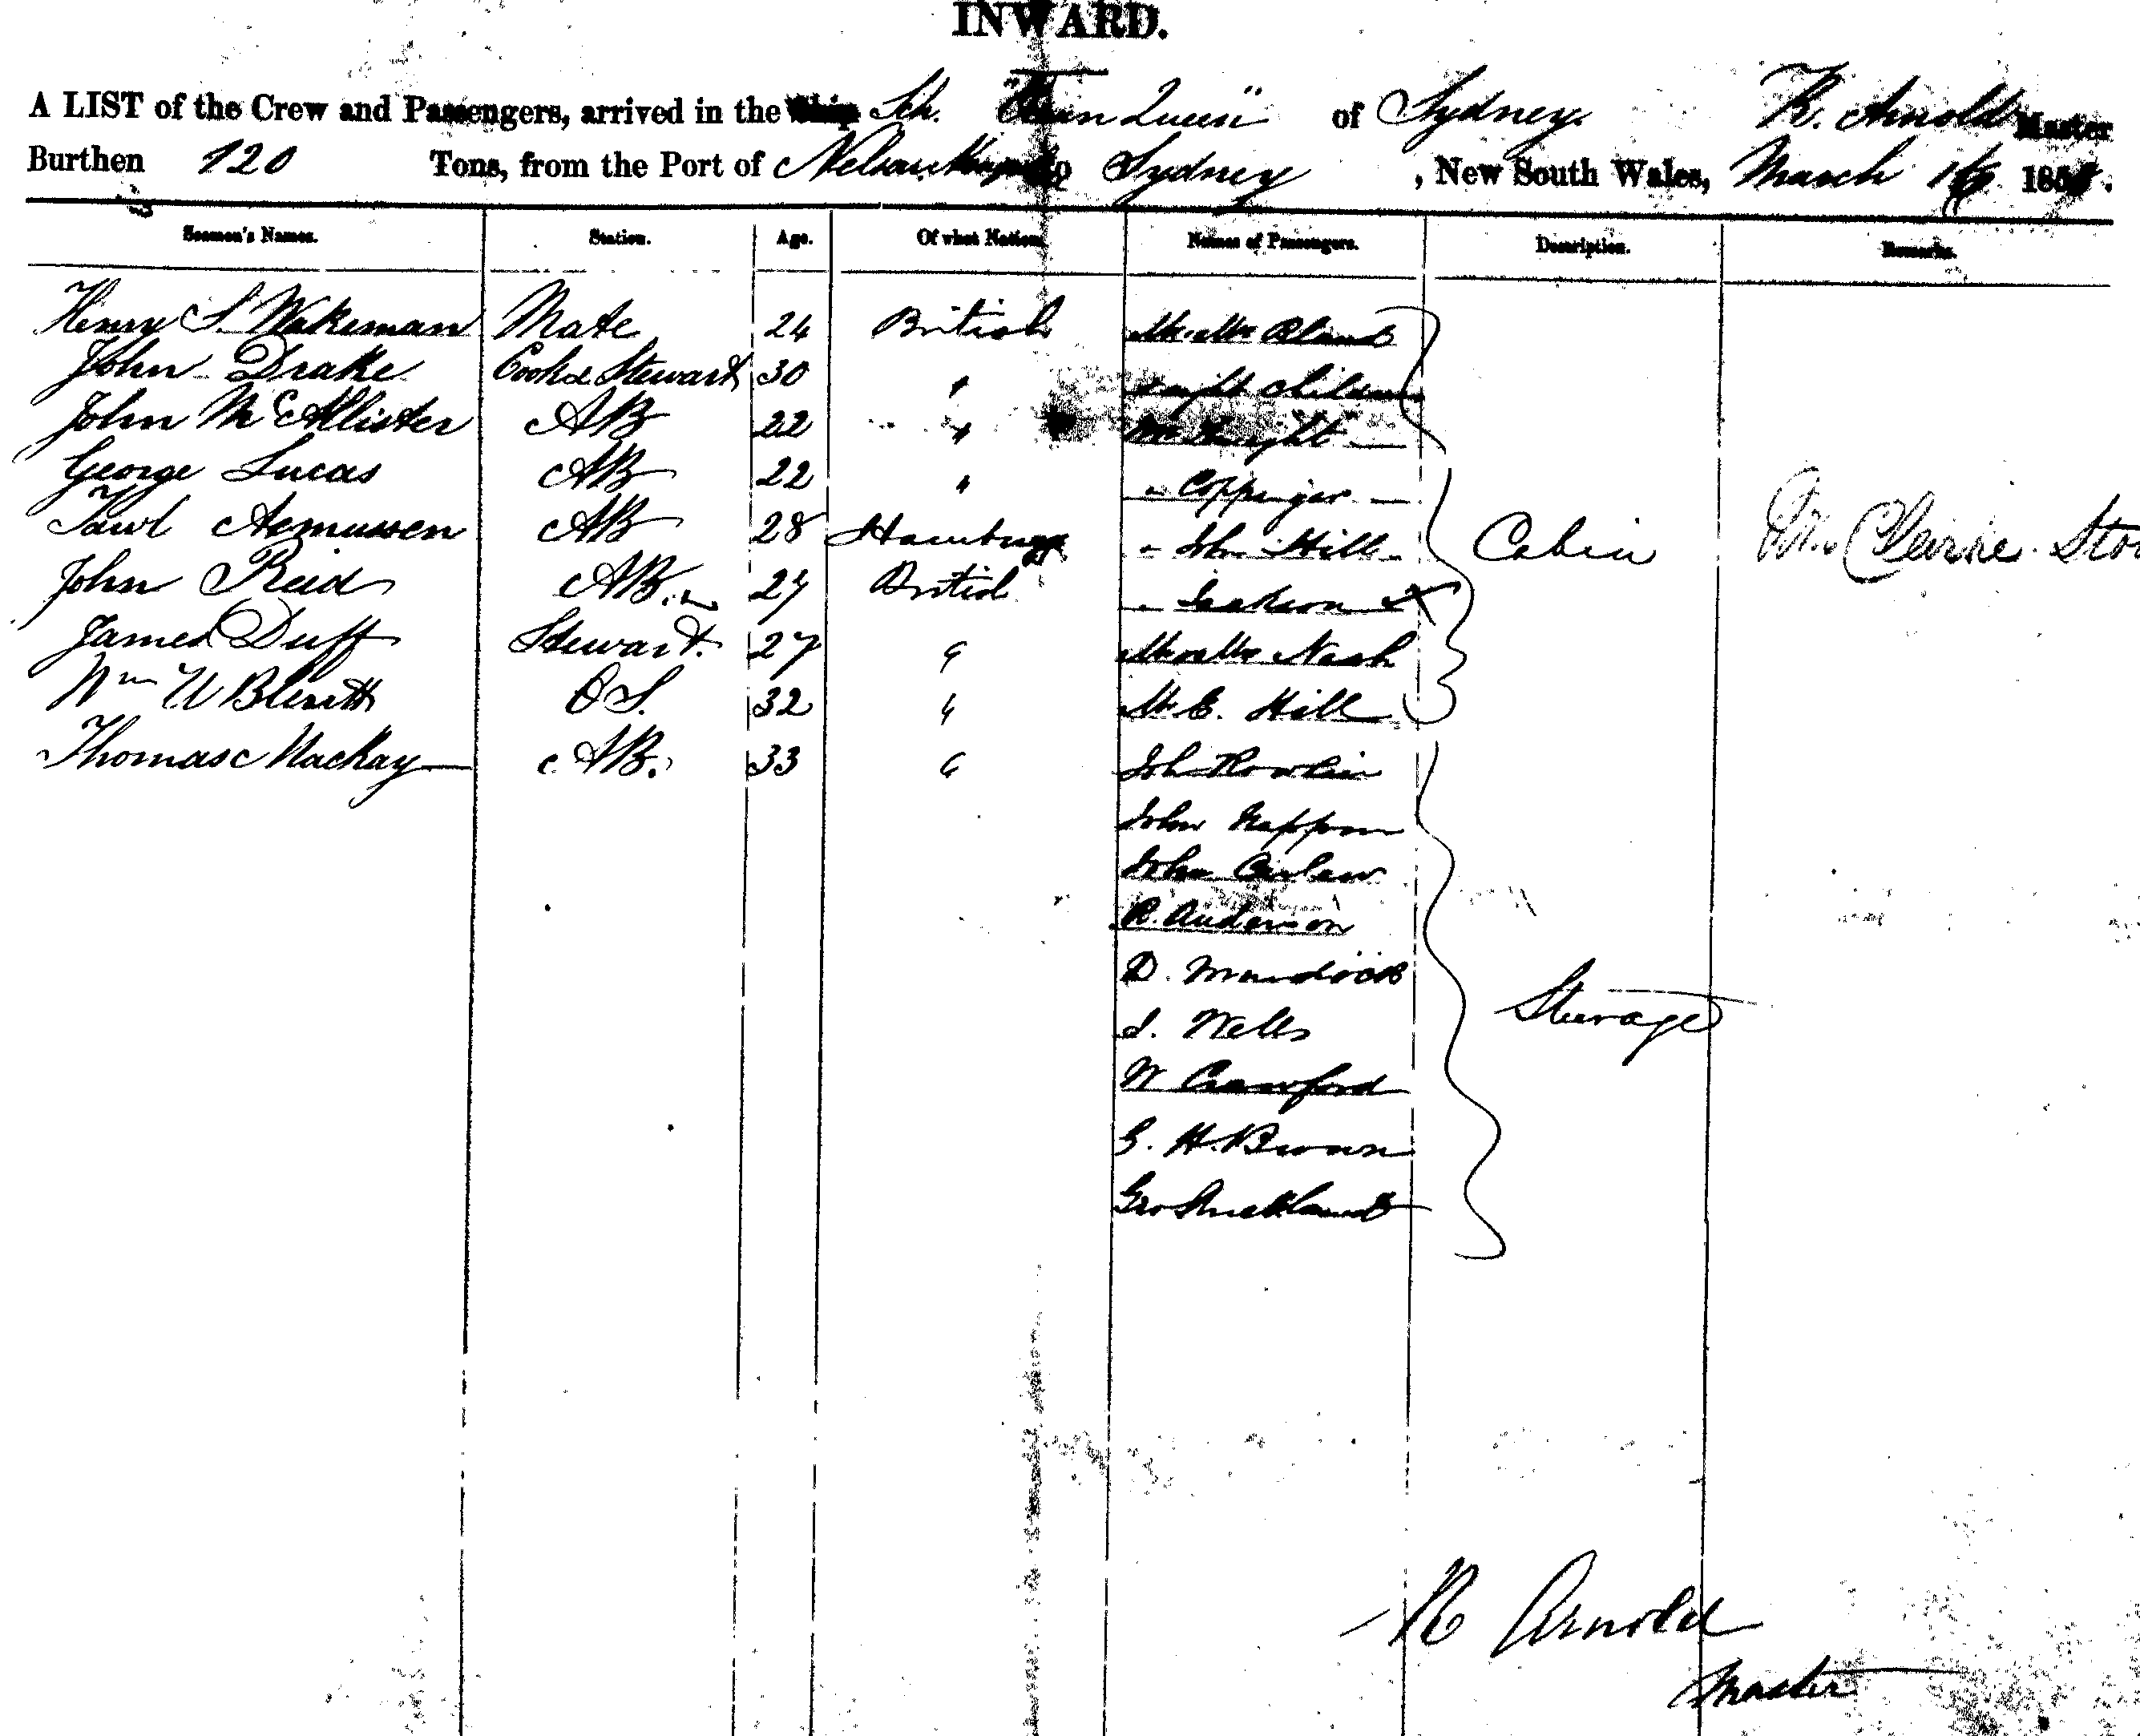 INWARD.
A LIST of the Crew and Passengers, arrived in the Ship Sch. Queen" of Sydney. R. Arnold Master
Burthen 120 Tons, from the Port of Nelson to Sydney, New South Wales, March 185
Seamen's Names. Station. Age. Of what Nation. Names of Passengers. Description. Remarks.
Henry S. Wakeman Mate 24 British Mr & Mrs Bland
John Drake Cook & Stewart 30 " children
John McAllister AB 22 " Mr Knight
George Lucas AB 22 " " Coppinger
Asmussen AB 28 Hamburg " John Hill Cabin Clarke
John Reid AB. 27 British " Jackson X
James Duff Stewart. 27 " Mr & Mrs Nash
Wm OS. 32 " Mr E. Hill
Thomas Mackay AB. 33 " Joh
John
John Carlaw
R. Anderson
D. Murdock
J. Wells
W Crawford
Steerage
G. H. Brown
Geo Strickland
R Arnold
Master